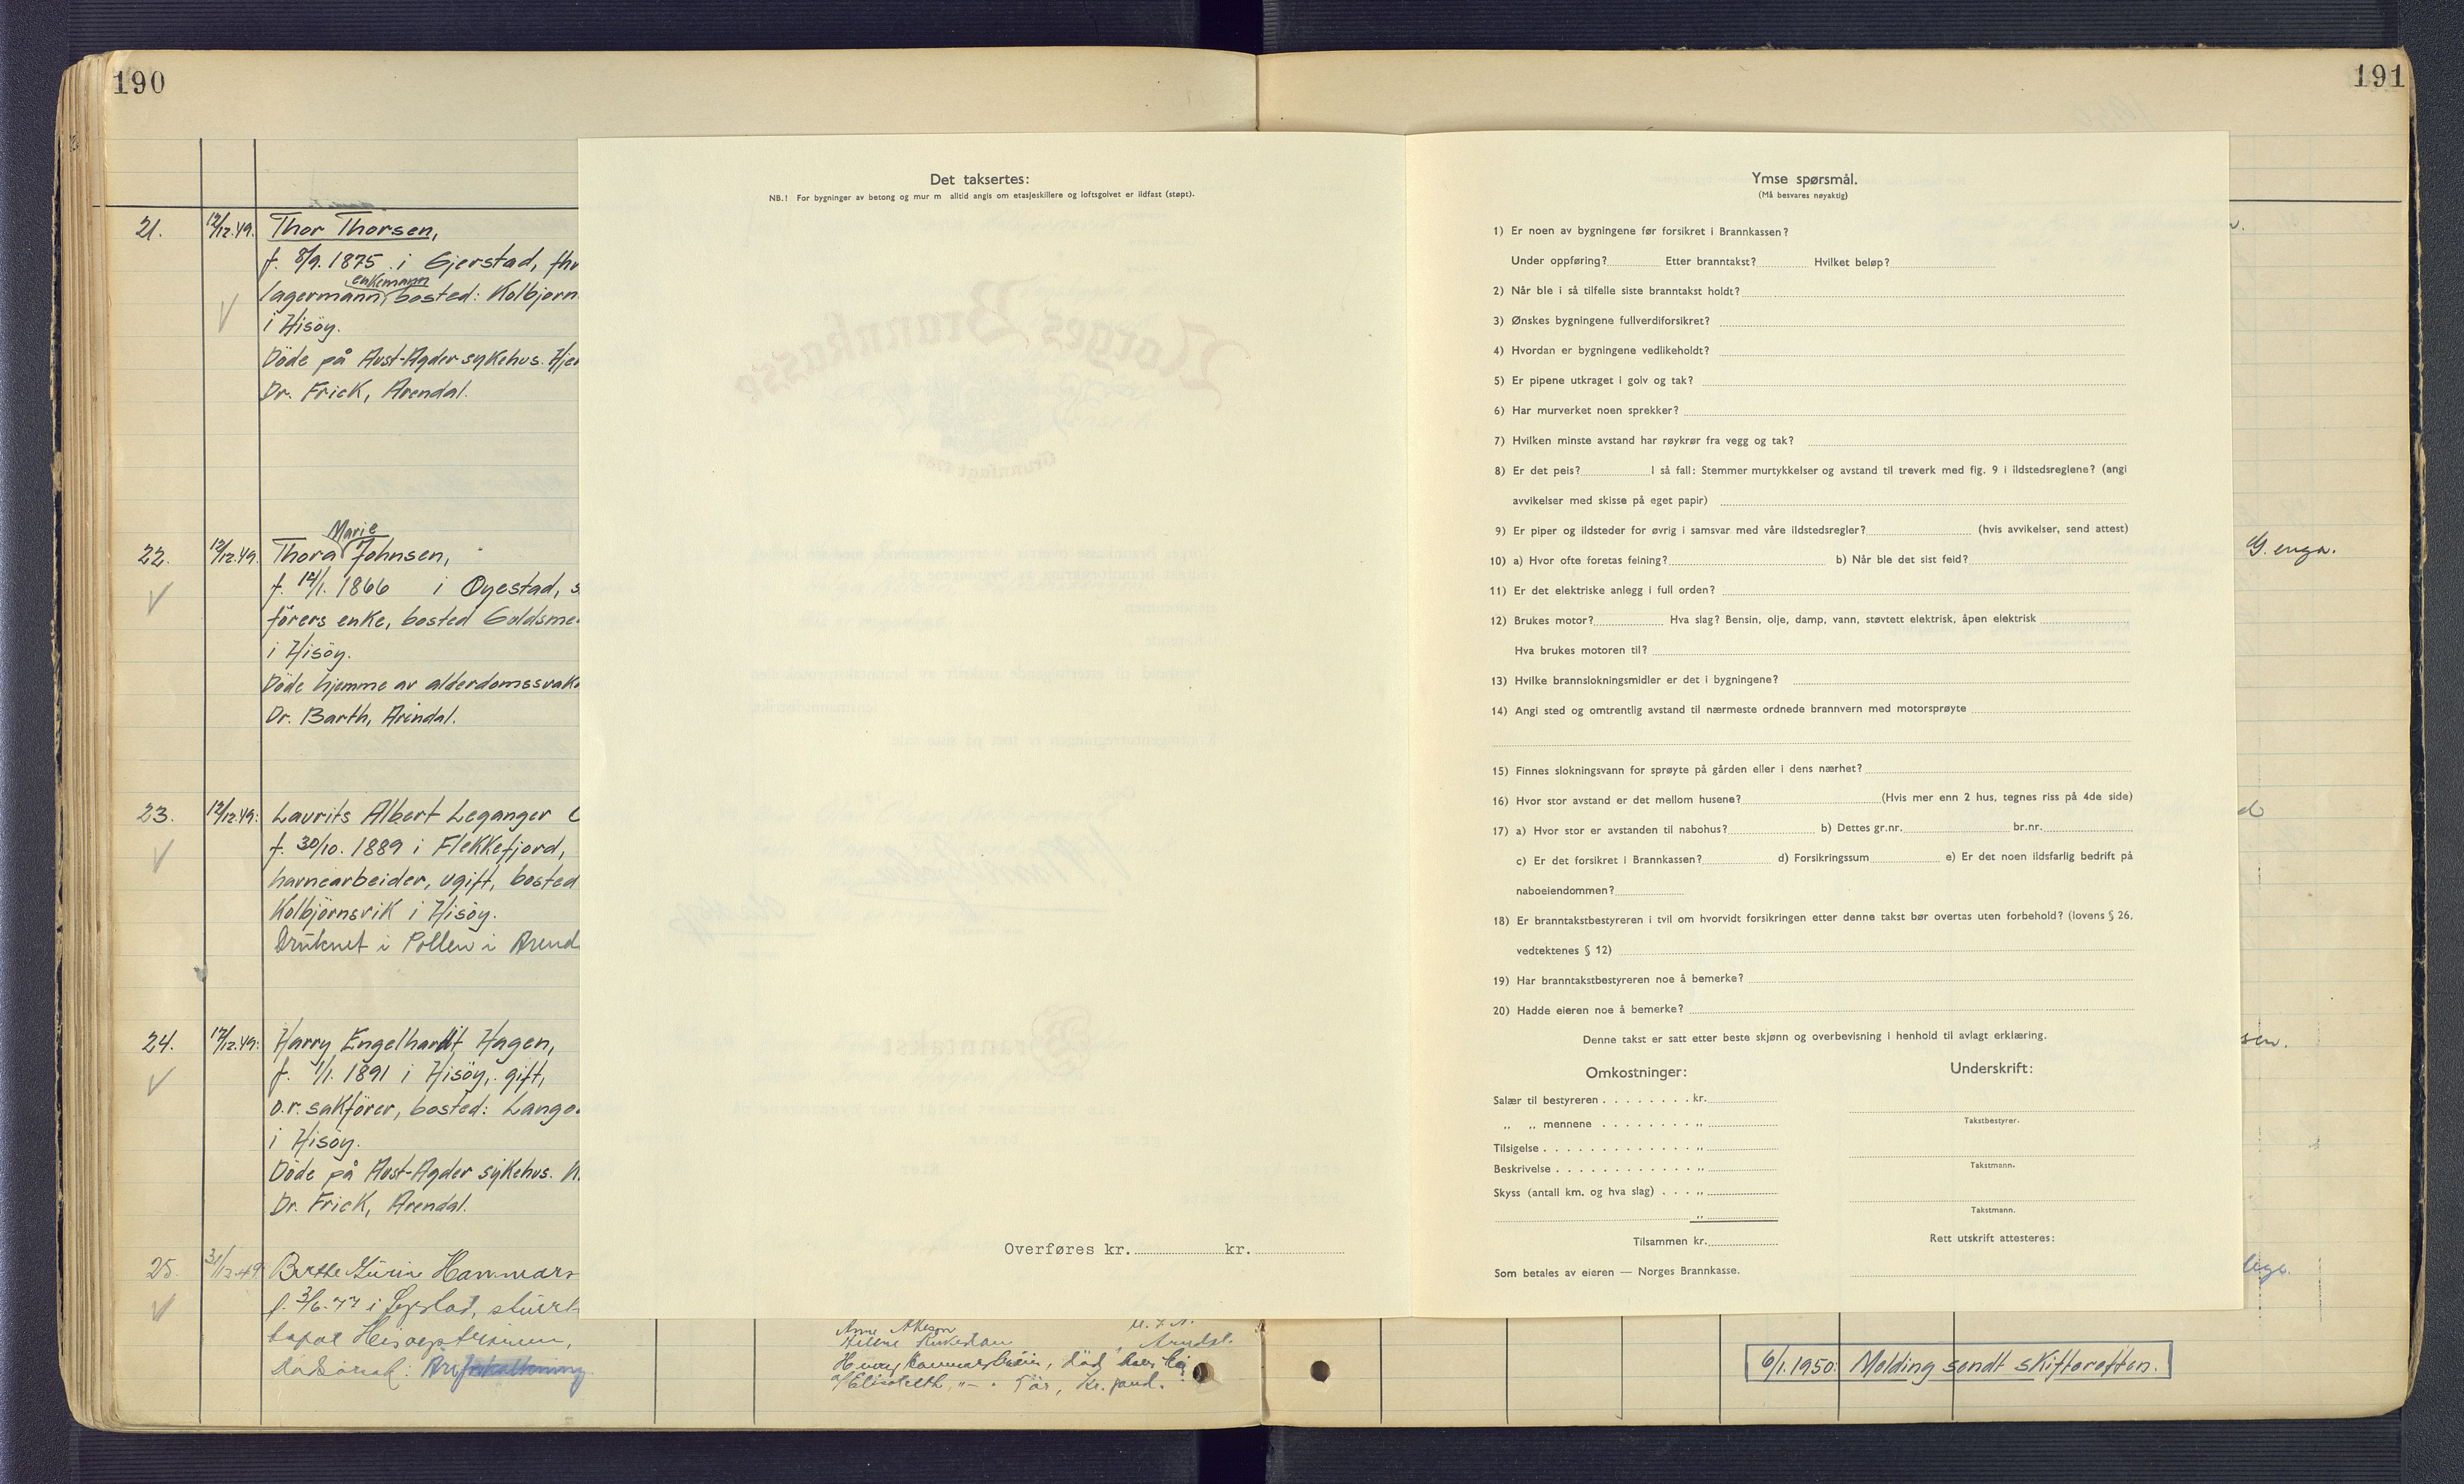 190
191
21.
12/12.49.
Thor Thorsen,
f. 8/9. 1875 i Gjerstad, fhv
enkemann
lagermann, bosted: Kolbjørn
i Hisöy.
Döde på Aust-Agder sykehus. Hjer
Dr. Frick, Arendal.
22.
12/12.49.
Marie
Thora Johnsen,
f. 12/1. 1866 i Öyestad, s
förers enke, bosted Guldsme
i Hisöy.
Döde hjemme av alderdomssvak
Dr. Barth, Arendal.
23.
12/12.49.
Laurits Albert Leganger
f. 30/10. 1889 i Flekkefjord,
havnearbeider, ugift, bosted
Kolbjörnsvik i Hisöy.
Druknet i Pollen i Arend
24.
17/12.49.
Harry Engelhardt Hagen,
f. 1/1. 1891 i Hisöy, gift,
o.r. sakförer, bosted: Lango
i Hisöy.
Döde på Aust-Agder sykehus.
Dr. Frick, Arendal.
25.
31/12.49
Berthe Hammers
f. 3/6.77 i
Det taksertes:
NB.! For bygninger av betong og mur m alltid angis om etasjeskillere og loftsgolvet er ildfast (støpt).
Overføres kr. kr.
Ymse spørsmål.
(Må besvares nøyaktig)
1) Er noen av bygningene før forsikret i Brannkassen?
Under oppføring? Etter branntakst? Hvilket beløp?
2) Når ble i så tilfelle siste branntakst holdt?
3) Ønskes bygningene fullverdiforsikret?
4) Hvordan er bygningene vedlikeholdt?
5) Er pipene utkraget i golv og tak?
6) Har murverket noen sprekker?
7) Hvilken minste avstand har røykrør fra vegg og tak?
8) Er det peis? I så fall: Stemmer murtykkelser og avstand til treverk med fig. 9 i ildstedsreglene? (angi
avvikelser med skisse på eget papir)
9) Er piper og ildsteder for øvrig i samsvar med våre ildstedsregler? (hvis avvikelser, send attest)
10) a) Hvor ofte foretas feining? b) Når ble det sist feid?
11) Er det elektriske anlegg i full orden?
12) Brukes motor? Hva slag? Bensin, olje, damp, vann, støvtett elektrisk, åpen elektrisk
Hva brukes motoren til?
13) Hvilke brannslokningsmidler er det i bygningene?
14) Angi sted og omtrentlig avstand til nærmeste ordnede brannvern med motorsprøyte
15) Finnes slokningsvann for sprøyte på gården eller i dens nærhet?
16) Hvor stor avstand er det mellom husene? (Hvis mer enn 2 hus, tegnes riss på 4de side)
17) a) Hvor stor er avstanden til nabohus? b) Dettes gr.nr. br.nr.
c) Er det forsikret i Brannkassen? d) Forsikringssum e) Er det noen ildsfarlig bedrift på
naboeiendommen?
18) Er branntakstbestyreren i tvil om hvorvidt forsikringen etter denne takst bør overtas uten forbehold? (lovens § 26,
vedtektenes § 12)
19) Har branntakstbestyreren noe å bemerke?
20) Hadde eieren noe å bemerke?
Denne takst er satt etter beste skjønn og overbevisning i henhold til avlagt erklæring.
Omkostninger:
Salær til bestyreren . . . . . . . . kr.
„ „ mennene . . . . . . . . . „
Tilsigelse . . . . . . . . . . . . . „
Beskrivelse . . . . . . . . . . . . „
Skyss (antall km. og hva slag) . . . „
„
Tilsammen kr.
Som betales av eieren — Norges Brannkasse.
Underskrift:
Takstbestyrer.
Takstmann.
Takstmann.
Rett utskrift attesteres:
6/1.1950: Melding sendt skifteretten.